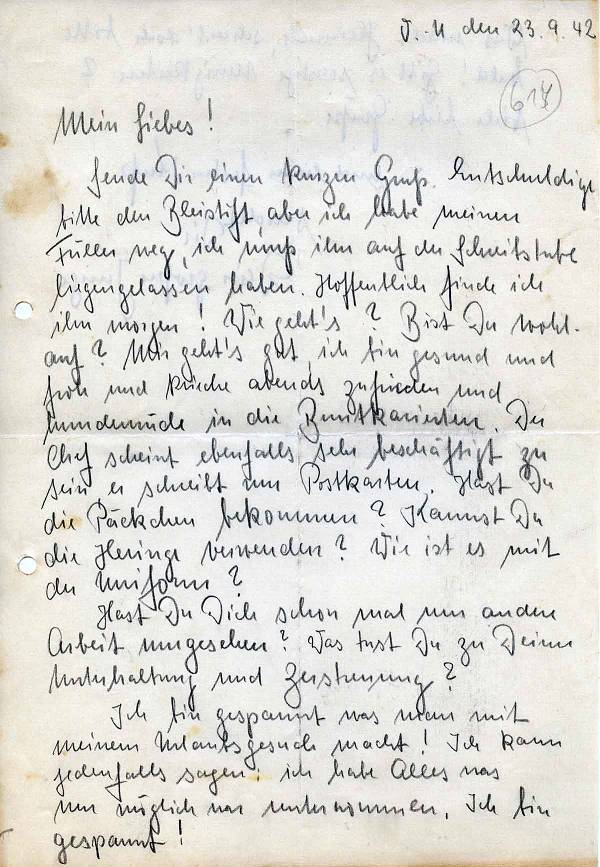 J.-H den 23.9.42
614
Mein Liebes!
Sende Dir einen kurzen Gruß. Entschuldige
bitte den Bleistift, aber ich habe meinen
Füller weg, ich muß ihn auf der Schreibstube
liegengelassen haben. Hoffentlich finde ich
ihn morgen! Wie geht's? Bist Du wohl-
auf? Mir geht's gut, ich bin gesund und
froh und krieche abends zufrieden und
hundemüde in die Buntkarierten. Der
Chef scheint ebenfalls sehr beschäftigt zu
sein, er schreibt nur Postkarten. Hast Du
die Päckchen bekommen? Kannst Du
die Heringe verwenden? Wie ist es mit
der Uniform?
Hast Du Dich schon mal um andere
Arbeit umgesehen? Was tust Du zu Deiner
Unterhaltung und Zerstreuung?
Ich bin gespannt was man mit
meinem Urlaubsgesuch macht! Ich kann
jedenfalls sagen: ich habe Alles was
nur möglich war unternommen. Ich bin
gespannt!